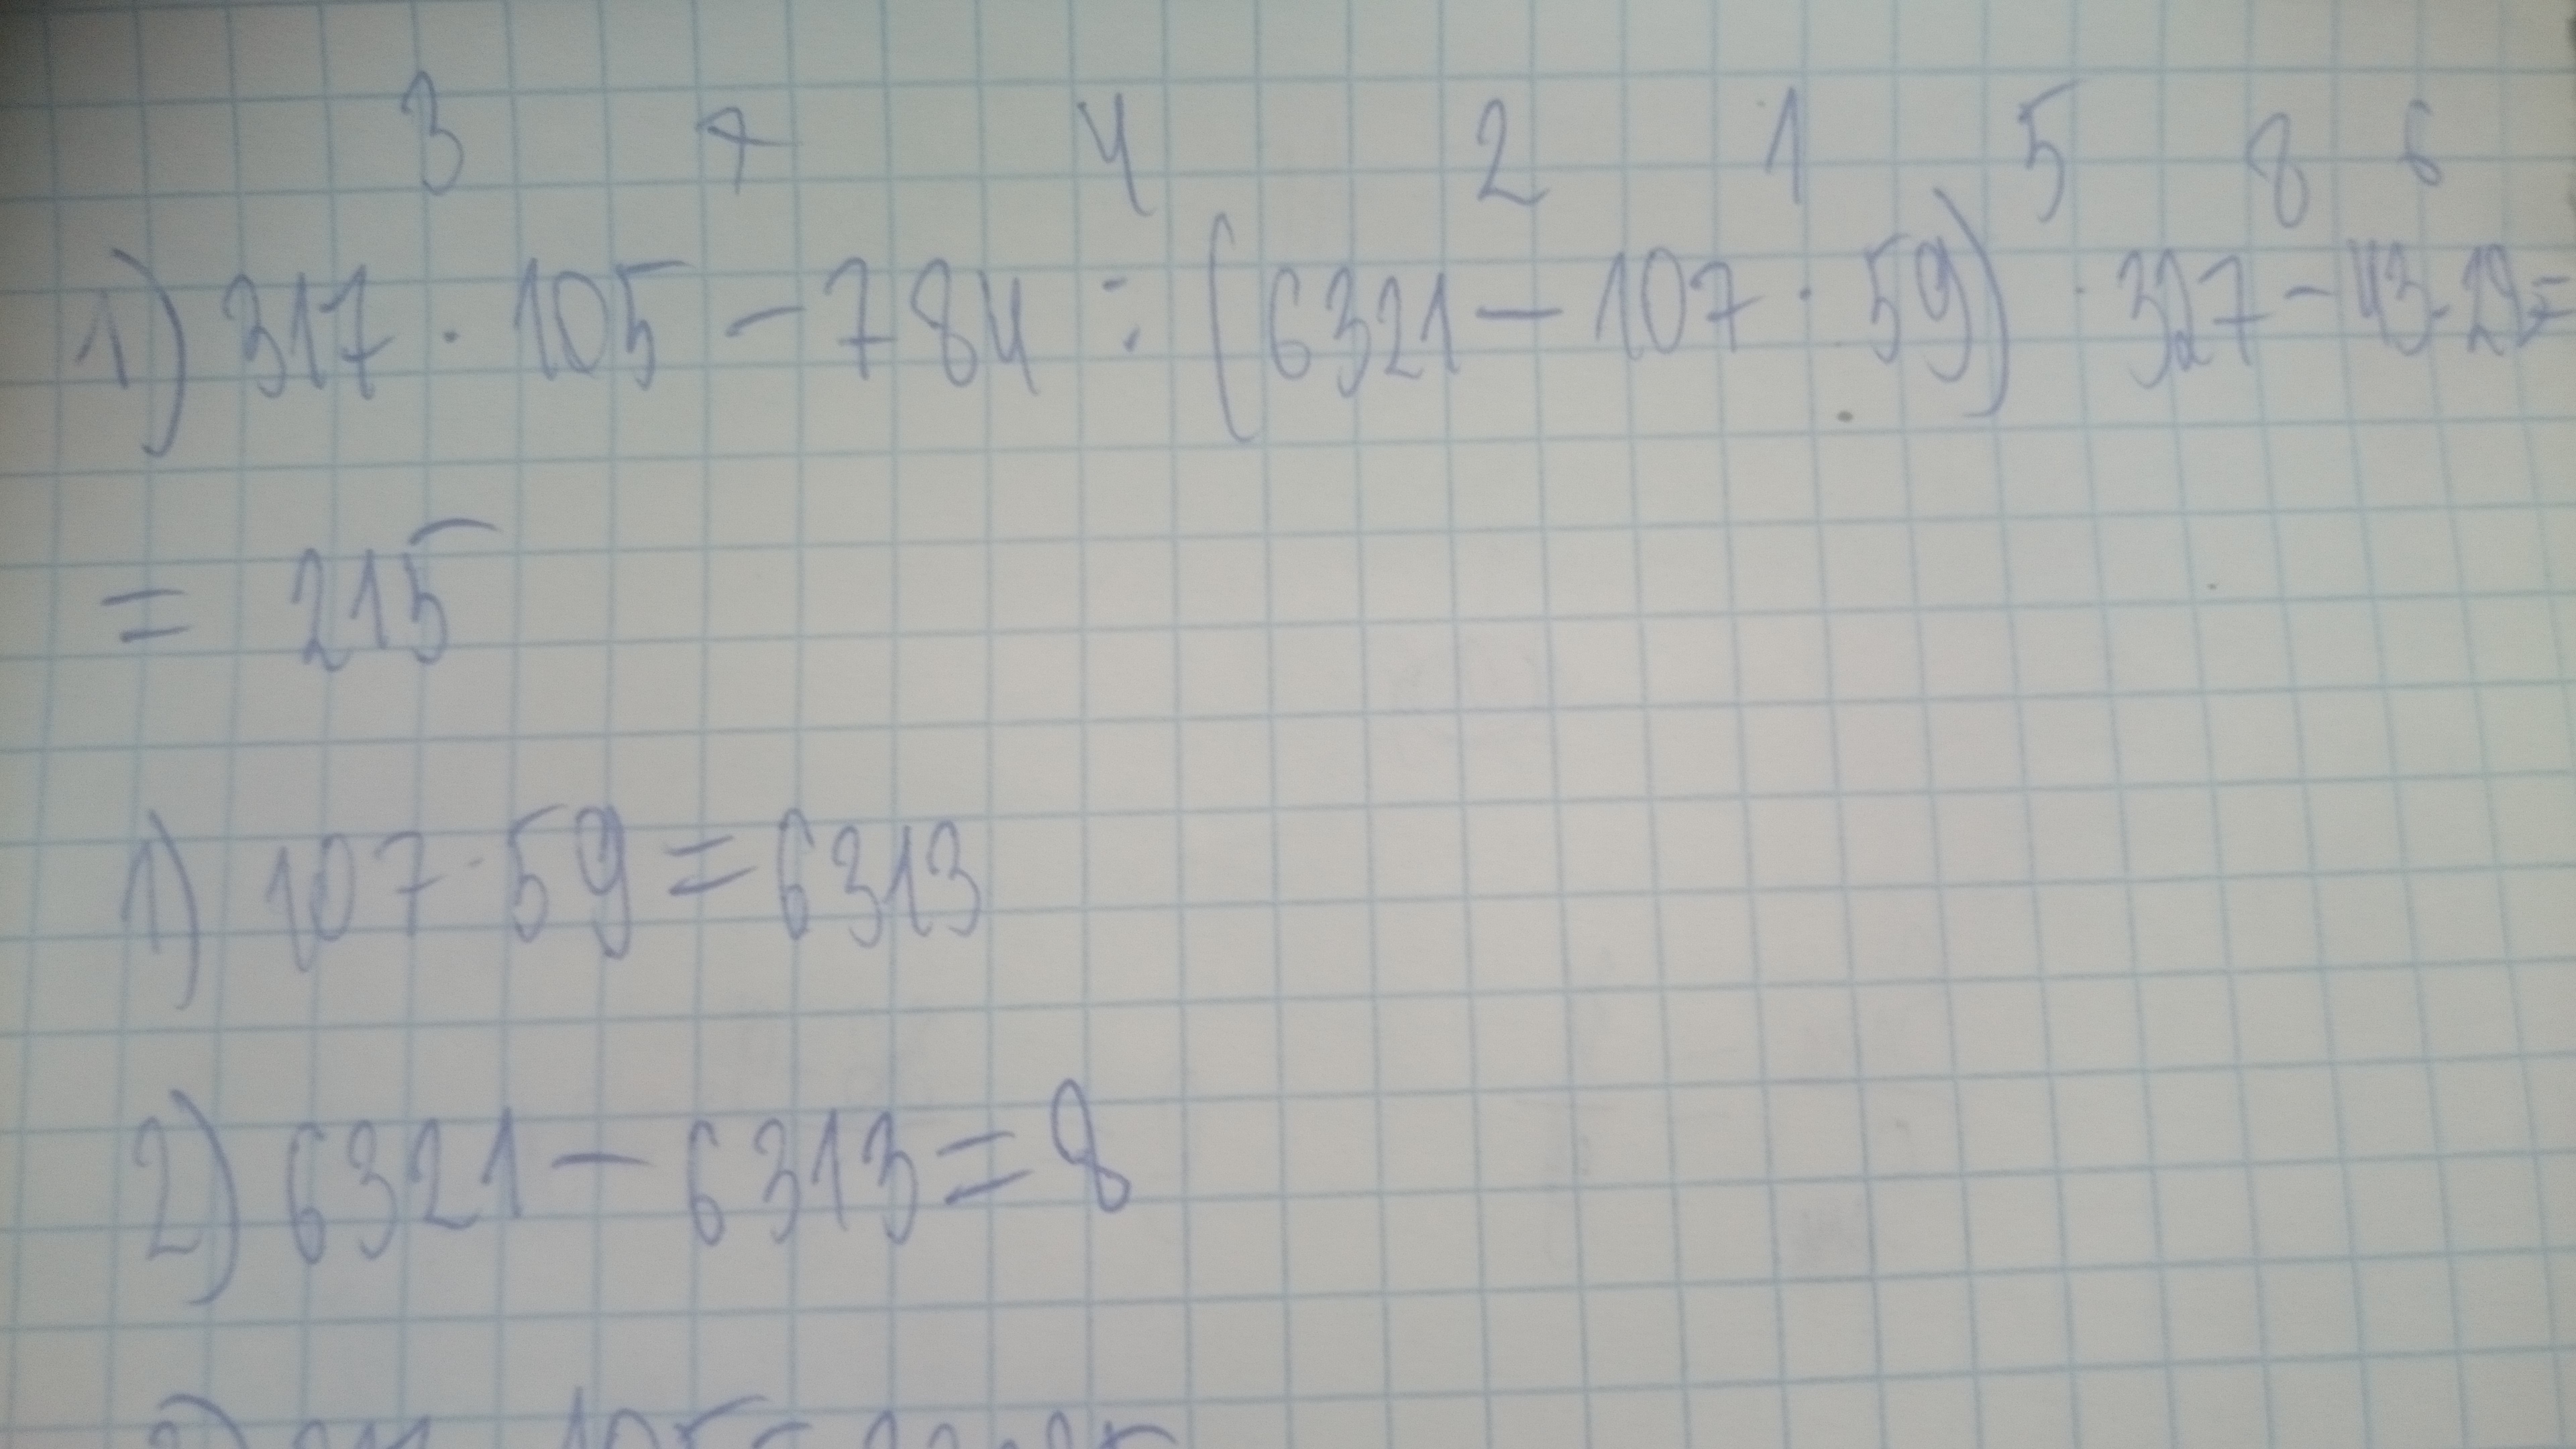 3 7 4 2 1 5 8 6
1) 317 · 105 – 784 : (6321 – 107 · 59) · 327 – 43 · 29 =
= 215
1) 107 · 59 = 6313
2) 6321 – 6313 = 8